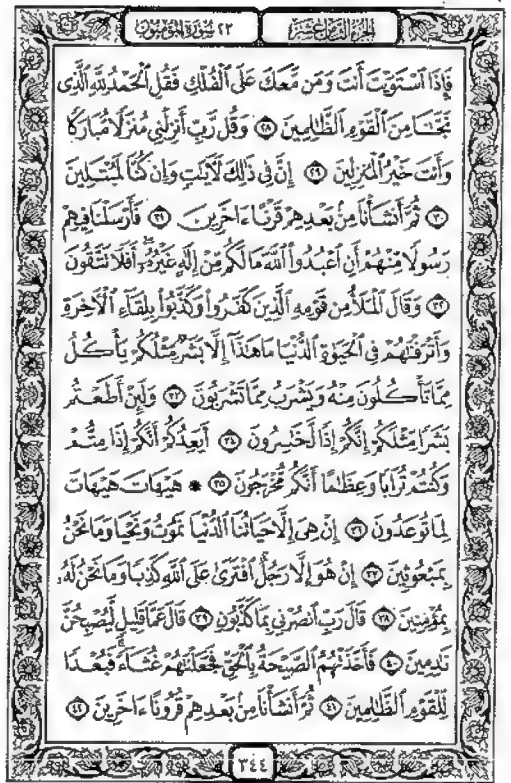 الجزء الثامن عشر
٢٣ سورة المؤمنون
فَإِذَا ٱسْتَوَيْتَ أَنتَ وَمَن مَّعَكَ عَلَى ٱلْفُلْكِ فَقُلِ ٱلْحَمْدُ لِلَّهِ ٱلَّذِى
نَجَّىٰنَا مِنَ ٱلْقَوْمِ ٱلظَّٰلِمِينَ ٢٨ وَقُل رَّبِّ أَنزِلْنِى مُنزَلًا مُّبَارَكًا
وَأَنتَ خَيْرُ ٱلْمُنزِلِينَ ٢٩ إِنَّ فِى ذَٰلِكَ لَـَٔايَٰتٍ وَإِن كُنَّا لَمُبْتَلِينَ
٣٠ ثُمَّ أَنشَأْنَا مِنۢ بَعْدِهِمْ قَرْنًا ءَاخَرِينَ ٣١ فَأَرْسَلْنَا فِيهِمْ
رَسُولًا مِّنْهُمْ أَنِ ٱعْبُدُوا۟ ٱللَّهَ مَا لَكُم مِّنْ إِلَٰهٍ غَيْرُهُۥٓ أَفَلَا تَتَّقُونَ
٣٢ وَقَالَ ٱلْمَلَأُ مِن قَوْمِهِ ٱلَّذِينَ كَفَرُوا۟ وَكَذَّبُوا۟ بِلِقَآءِ ٱلْـَٔاخِرَةِ
وَأَتْرَفْنَٰهُمْ فِى ٱلْحَيَوٰةِ ٱلدُّنْيَا مَا هَٰذَآ إِلَّا بَشَرٌ مِّثْلُكُمْ يَأْكُلُ
مِمَّا تَأْكُلُونَ مِنْهُ وَيَشْرَبُ مِمَّا تَشْرَبُونَ ٣٣ وَلَئِنْ أَطَعْتُم
بَشَرًا مِّثْلَكُمْ إِنَّكُمْ إِذًا لَّخَٰسِرُونَ ٣٤ أَيَعِدُكُمْ أَنَّكُمْ إِذَا مِتُّمْ
وَكُنتُمْ تُرَابًا وَعِظَٰمًا أَنَّكُم مُّخْرَجُونَ ٣٥ * هَيْهَاتَ هَيْهَاتَ
لِمَا تُوعَدُونَ ٣٦ إِنْ هِىَ إِلَّا حَيَاتُنَا ٱلدُّنْيَا نَمُوتُ وَنَحْيَا وَمَا نَحْنُ
بِمَبْعُوثِينَ ٣٧ إِنْ هُوَ إِلَّا رَجُلٌ ٱفْتَرَىٰ عَلَى ٱللَّهِ كَذِبًا وَمَا نَحْنُ لَهُۥ
بِمُؤْمِنِينَ ٣٨ قَالَ رَبِّ ٱنصُرْنِى بِمَا كَذَّبُونِ ٣٩ قَالَ عَمَّا قَلِيلٍ لَّيُصْبِحُنَّ
نَٰدِمِينَ ٤٠ فَأَخَذَتْهُمُ ٱلصَّيْحَةُ بِٱلْحَقِّ فَجَعَلْنَٰهُمْ غُثَآءً فَبُعْدًا
لِّلْقَوْمِ ٱلظَّٰلِمِينَ ٤١ ثُمَّ أَنشَأْنَا مِنۢ بَعْدِهِمْ قُرُونًا ءَاخَرِينَ ٤٢
٣٤٤